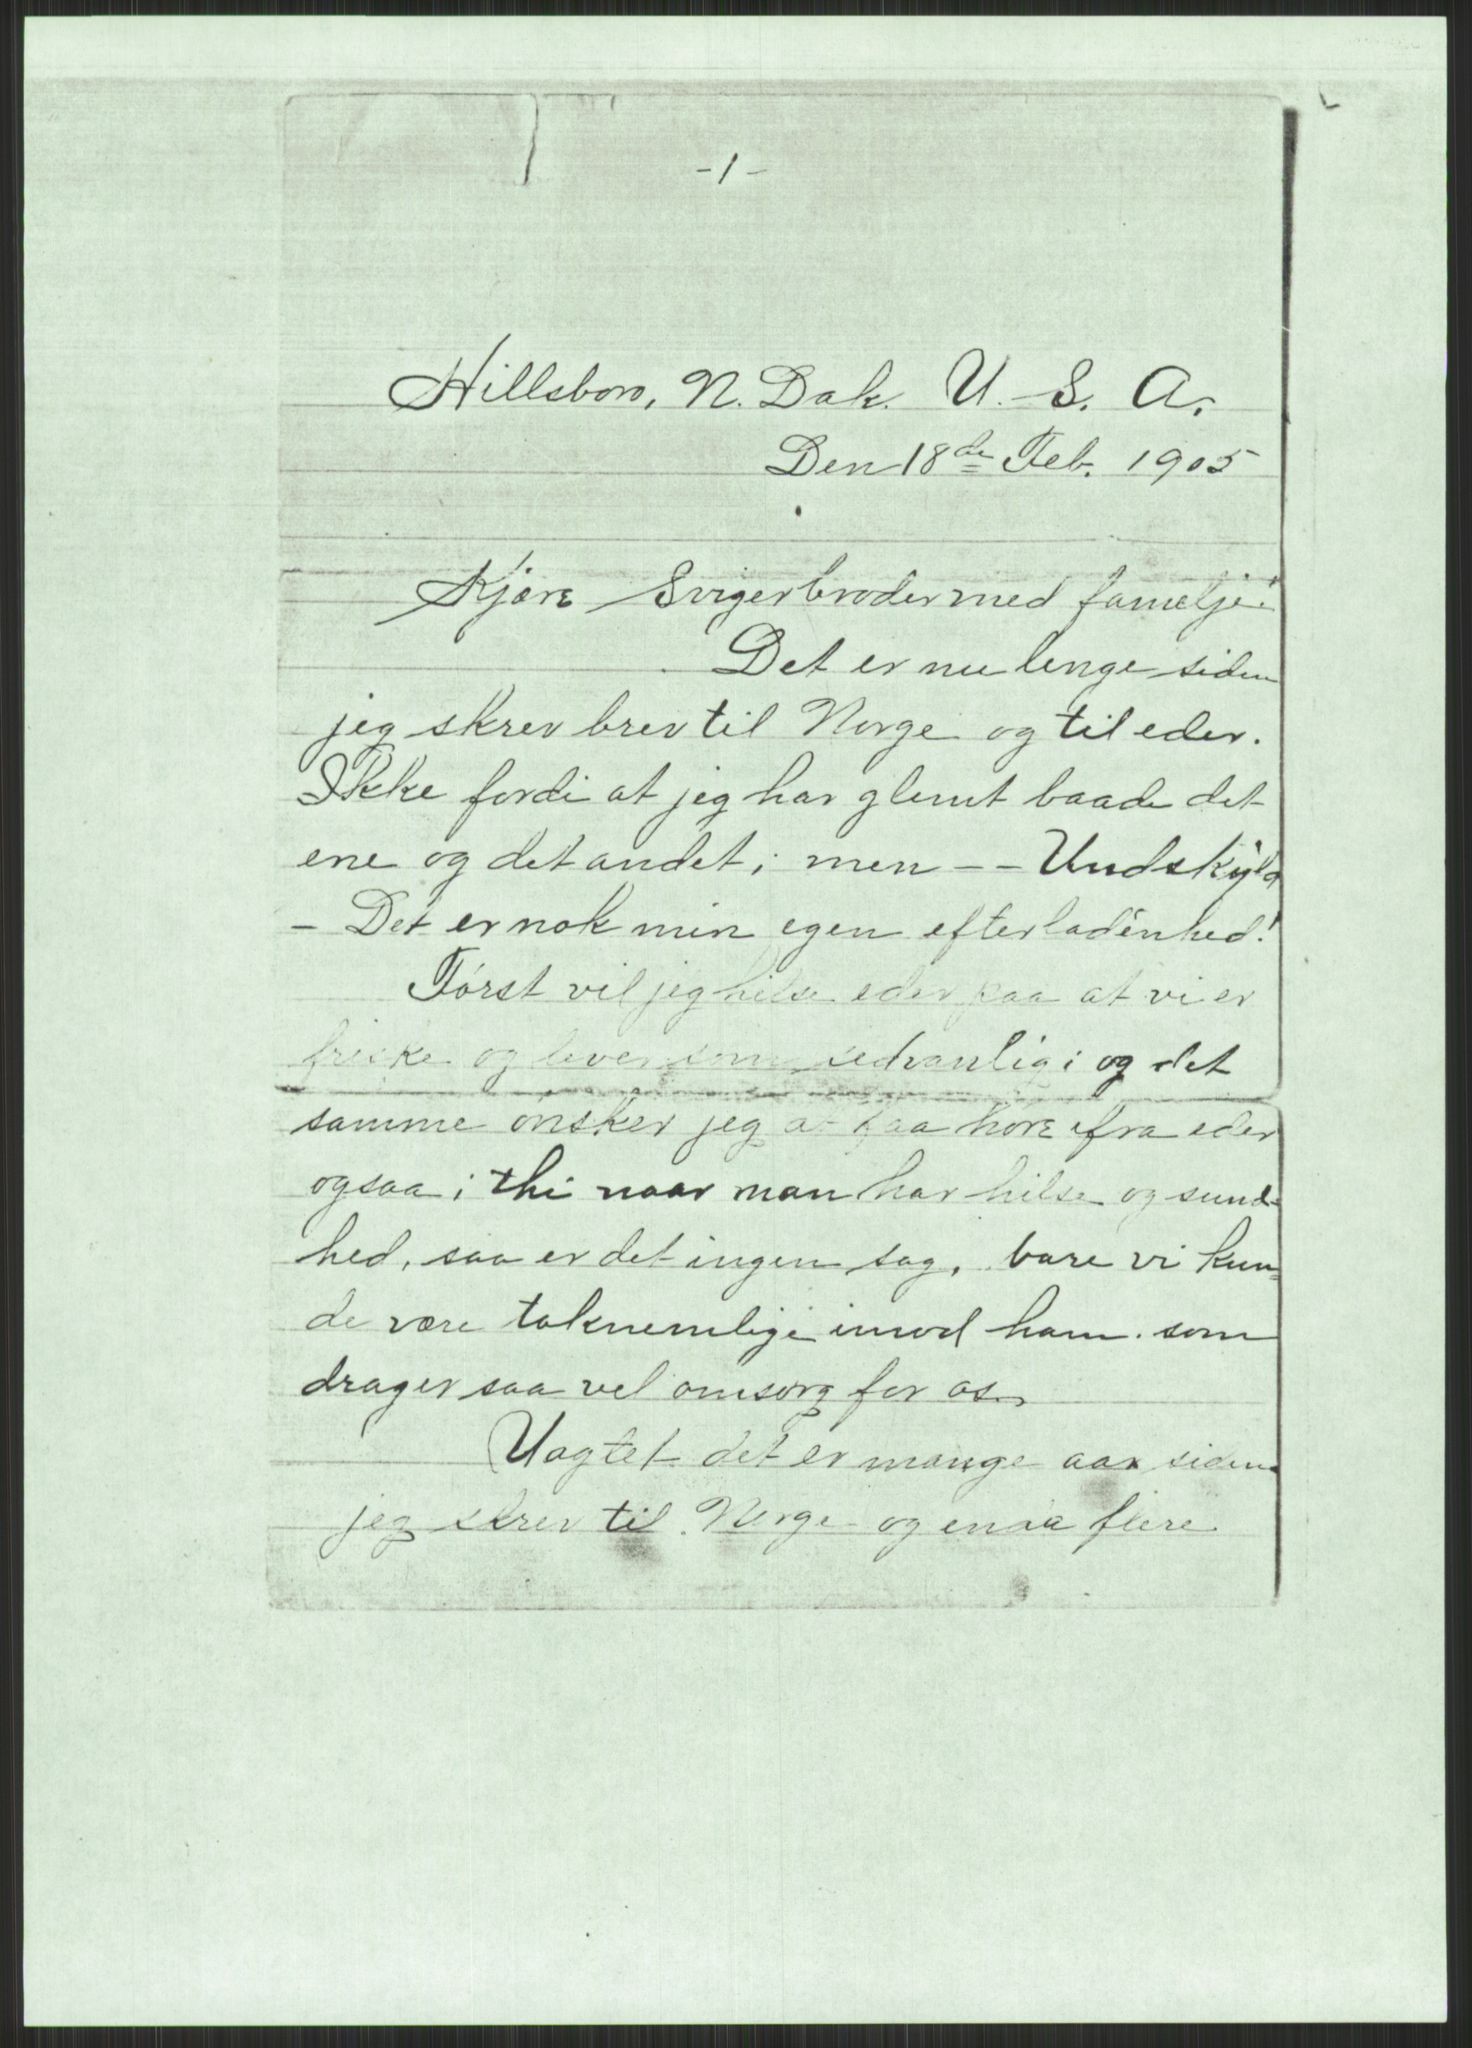 -1-
Hillsboro, N. Dak. U. S. A.
Den 18de Feb. 1905
Kjære Svigerbroder med famelje!
Det er nu lenge siden
jeg skrev brev til Norge og til eder.
Ikke fordi at jeg har glemt baade det
ene og det andet; men -- Undskyld
- Det er nok min egen efterladenhed!
Først vil jeg hilse eder paa at vi er
friske og lever som sedvanlig; og det
samme ønsker jeg at faa høre ifra eder
ogsaa; thi naar man har hilse og sund-
hed, saa er det ingen sag, bare vi kun=
de være taknemlige imod ham som
drager saa vel omsorg for os.
Uagtet det er mange aar siden
jeg skrev til Norge og endda flere